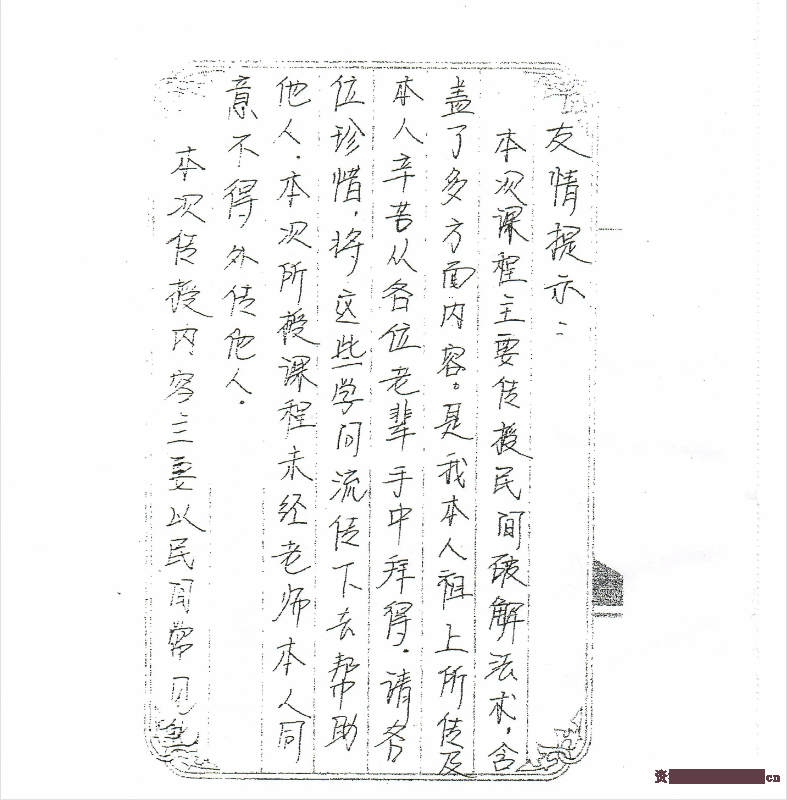 友情提示：
本次课程主要传授民间破解法术，含
盖了多方面内容。是我本人祖上所传及
本人辛苦从各位老辈手中拜得．请务
位珍惜，将这些学问流传下去帮助
他人．本次所授课程未经老师本人同
意不得外传他人．
本次传授内容主要以民间常见
资
cn